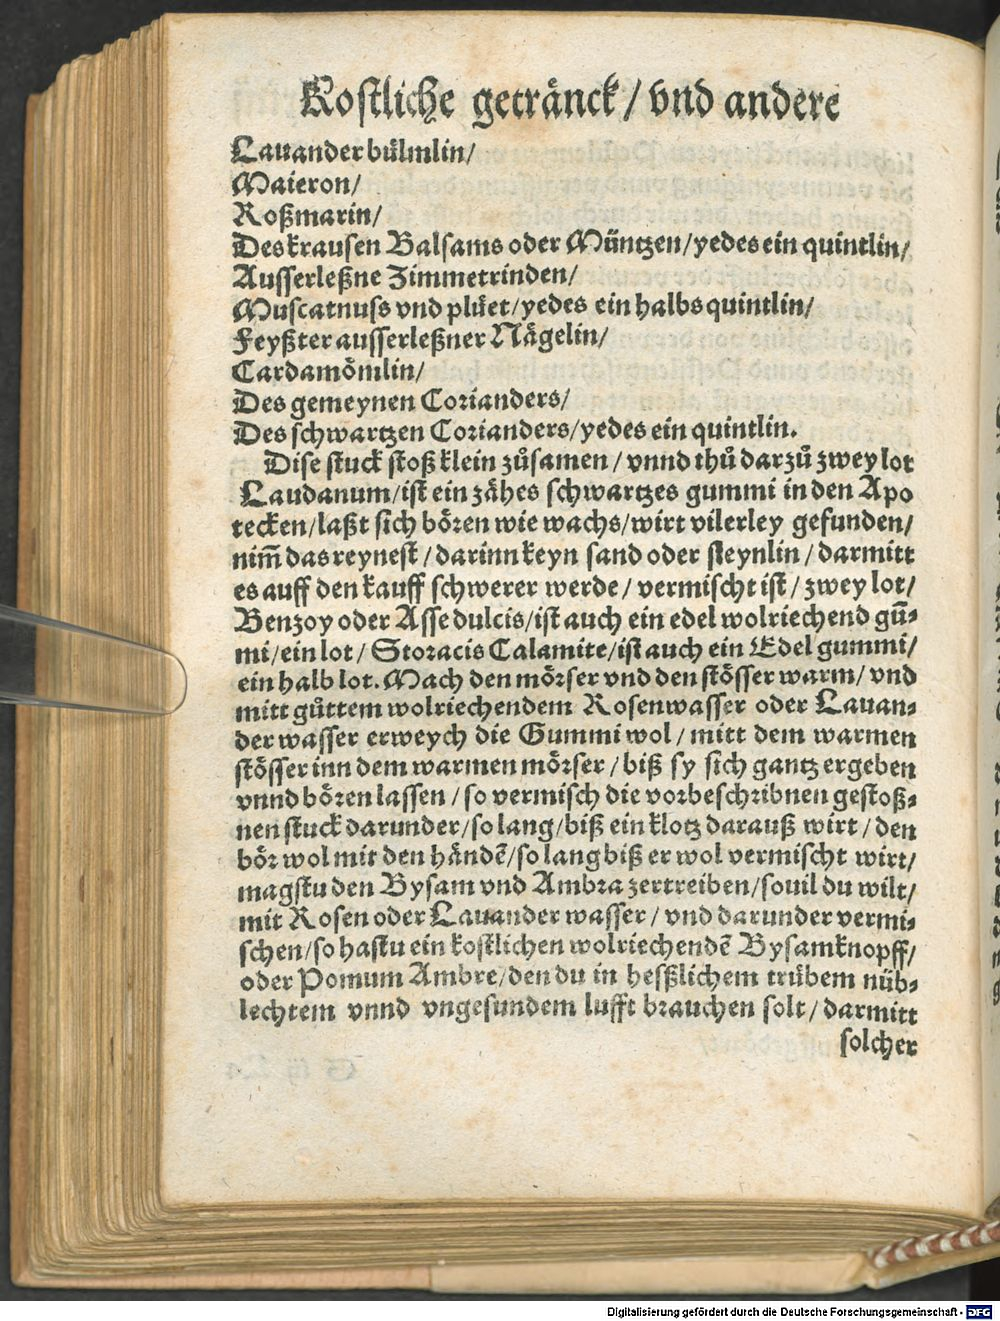 Kostliche getränck / vnd andere
Lauander bülmlin/
Maieron/
Roßmarin/
Des krausen Balsams oder Müntzen/yedes ein quintlin/
Ausserleßne Zimmetrinden/
Muscatnuss vnd plüet/yedes ein halbs quintlin/
Feyßter ausserleßner Nägelin/
Cardamömlin/
Des gemeynen Corianders/
Des schwartzen Corianders/yedes ein quintlin.
Dise stuck stoß klein zůsamen / vnnd thů darzů zwey lot
Laudanum/ist ein zähes schwartzes gummi in den Apo
tecken/laßt sich bören wie wachs/wirt vilerley gefunden/
nim̃ das reynest / darinn keyn sand oder steynlin / darmitt
es auff den kauff schwerer werde / vermischt ist / zwey lot/
Benzoy oder Asse dulcis/ist auch ein edel wolriechend gũ-
mi/ein lot / Storacis Calamite/ist auch ein Edel gummi/
ein halb lot. Mach den mörser vnd den stösser warm/ vnd
mitt gůttem wolriechendem Rosenwasser oder Lauan-
der wasser erweych die Gummi wol / mitt dem warmen
stösser inn dem warmen mörser / biß sy sich gantz ergeben
vnnd bören lassen / so vermisch die vorbeschribnen gestoß-
nen stuck darunder/so lang/biß ein klotz darauß wirt / den
bör wol mit den händẽ/so lang biß er wol vermischt wirt/
magstu den Bysam vnd Ambra zertreiben/souil du wilt/
mit Rosen oder Lauander wasser / vnd darunder vermi-
schen/so hastu ein kostlichen wolriechendẽ Bysamknopff/
oder Pomum Ambre/den du in hesßlichem trübem nüb-
lechtem vnnd vngesundem lufft brauchen solt / darmitt
solcher
Digitalisierung gefördert durch die Deutsche Forschungsgemeinschaft - DFG